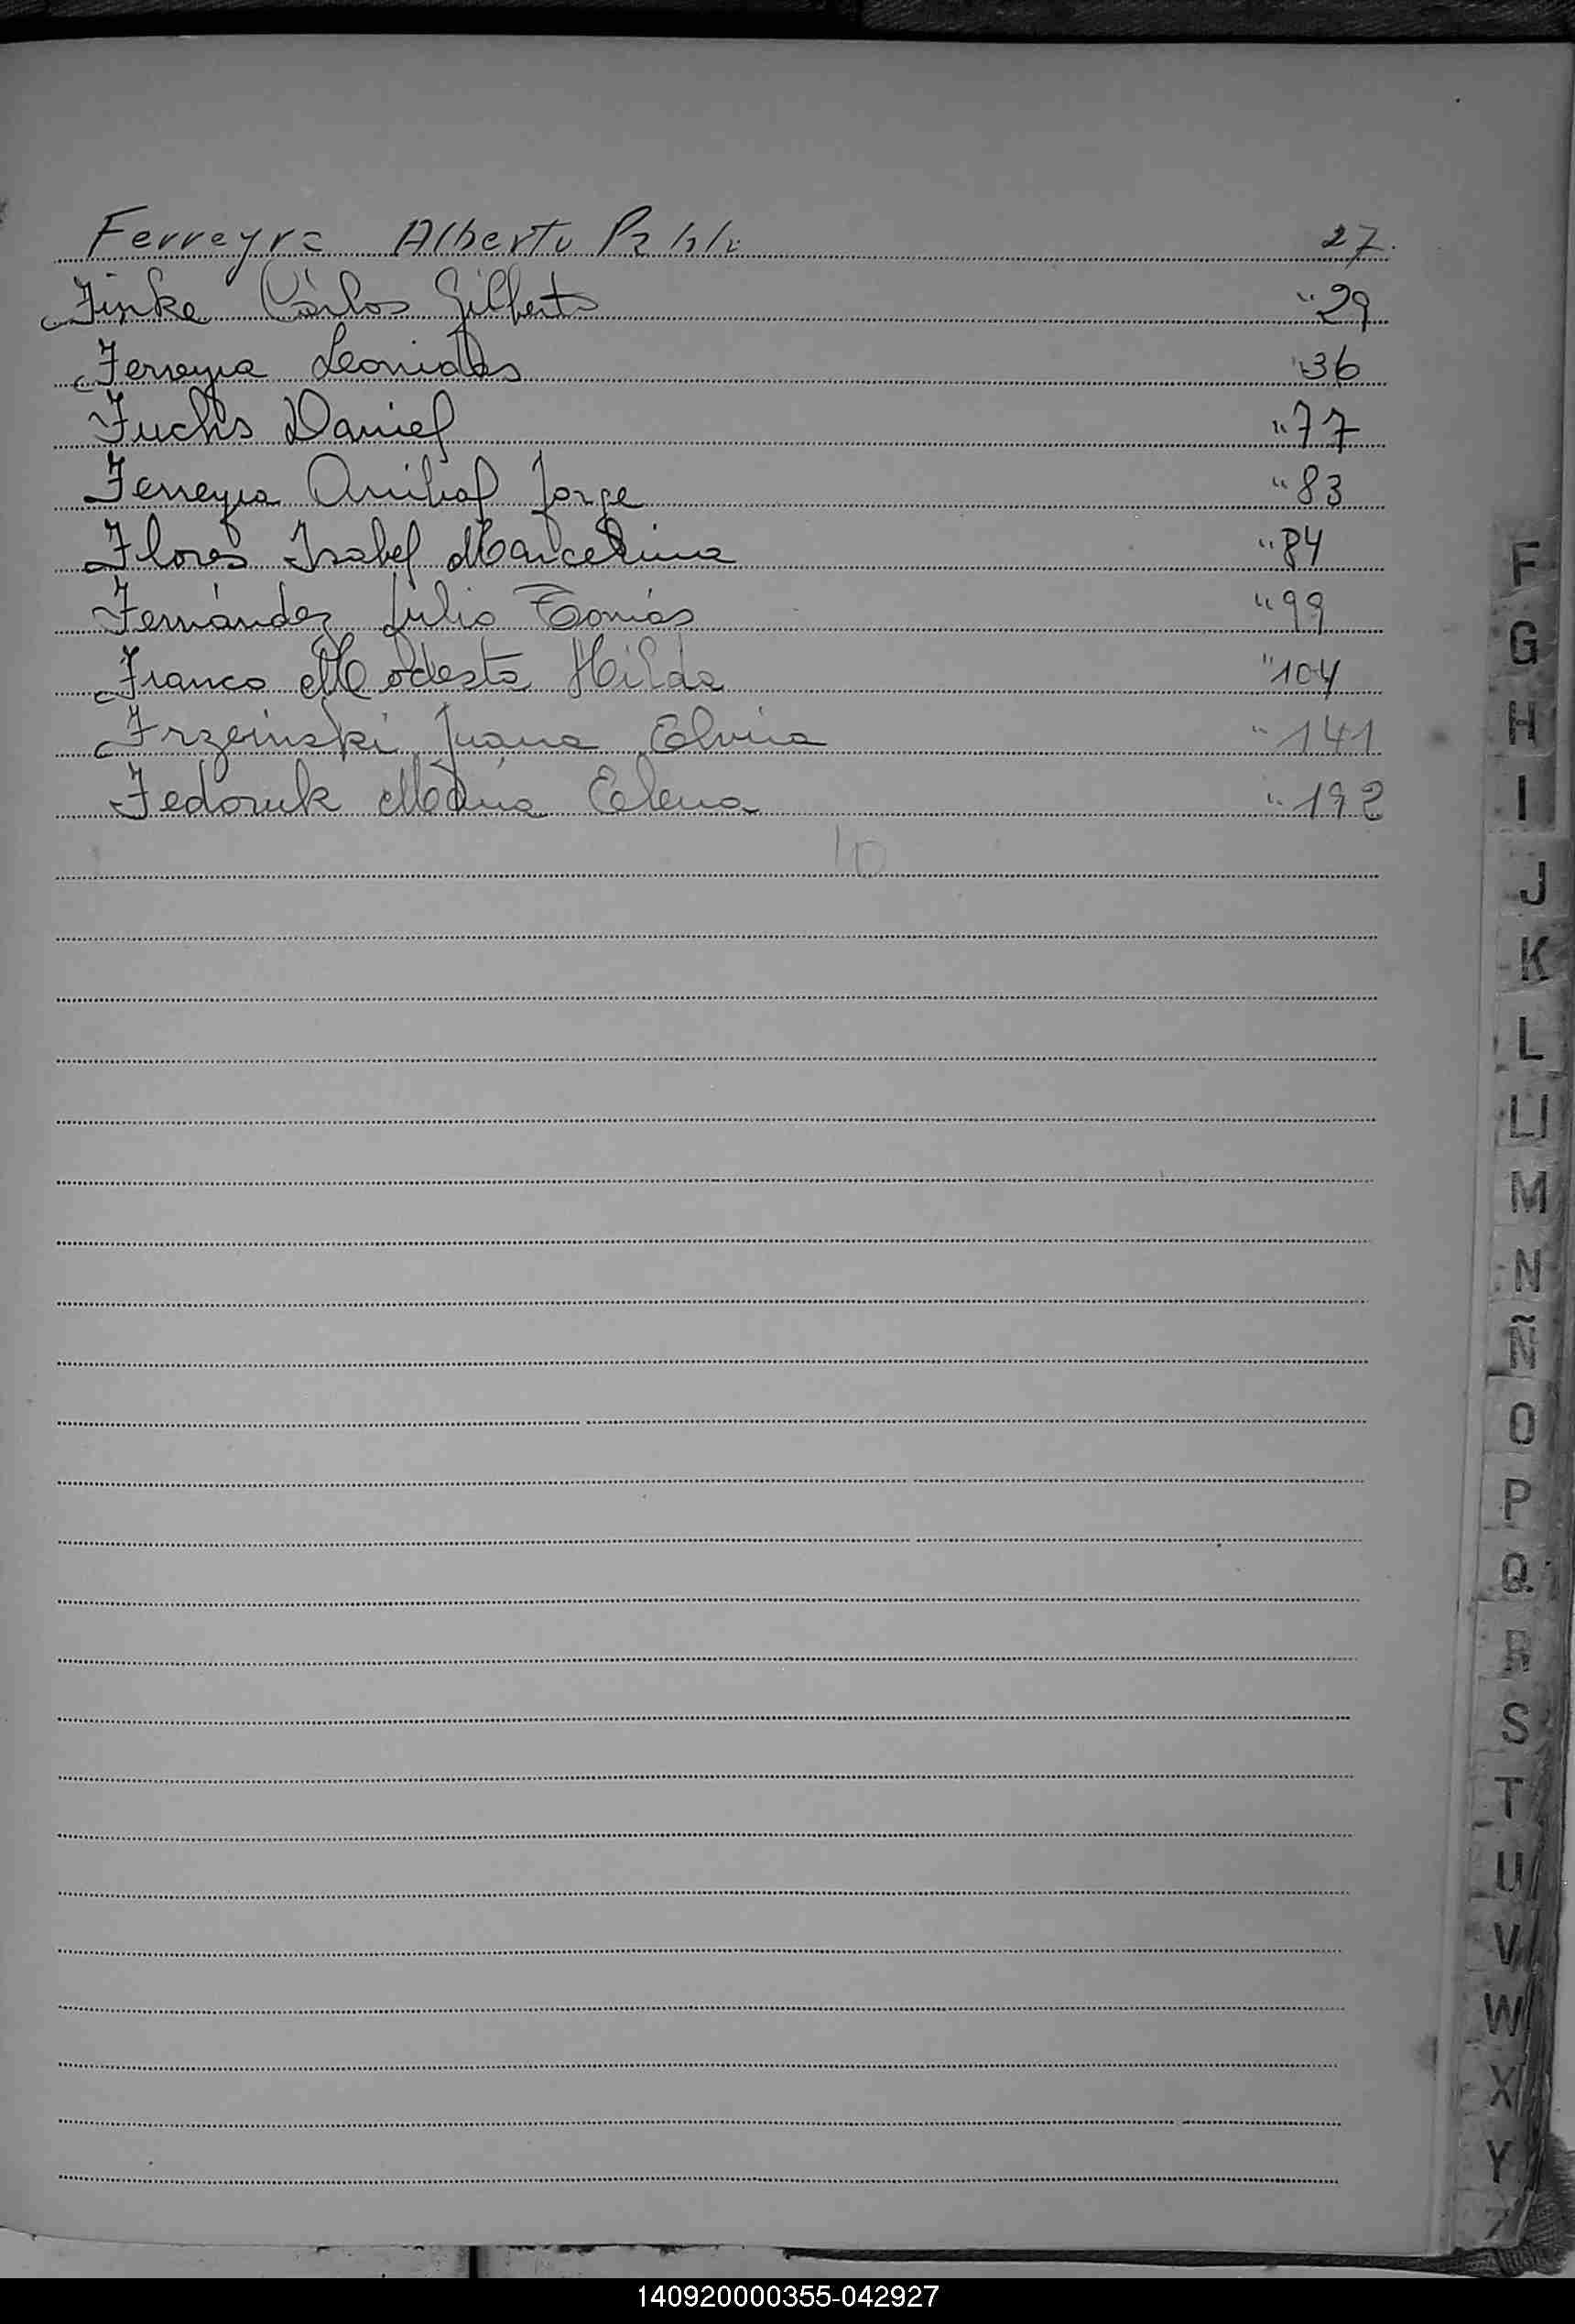 Ferreyra Alberto Pablo 27.
Finke Carlos Gilberto " 29
Ferreyra Leonidas " 36
Fuchs Daniel " 77
Ferreyra Anibal Jorge " 83
Flores Isabel Marcelina " 84
Fernández Julio Tomás " 99
Franco Modesta Hilda " 104
Frzeinski Juana Elvira " 141
Fedoruk María Elena " 192
10
F
G
H
I
J
K
L
LL
M
N
Ñ
O
P
Q
R
S
T
U
V
W
X
Y
Z
140920000355-042927